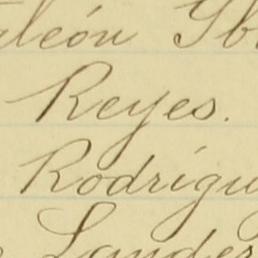 aleón Yb
Reyes.
Rodrígu
Lander